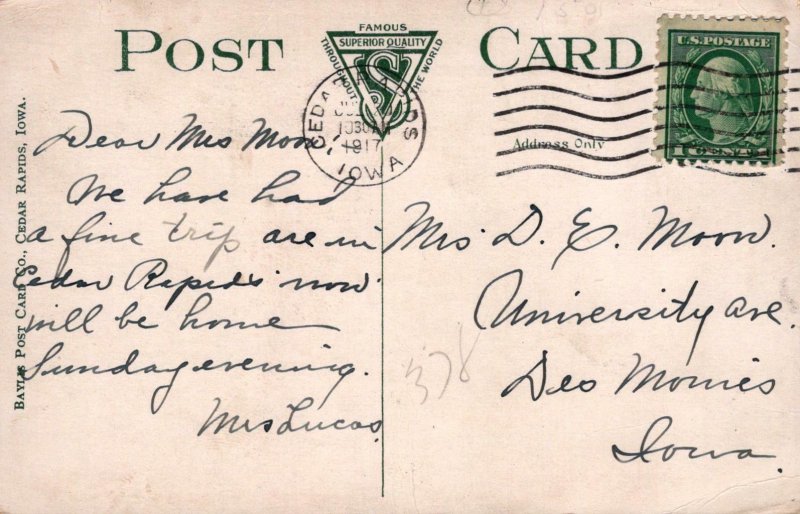 POST CARD
FAMOUS
SUPERIOR QUALITY
THROUGHOUT THE WORLD
CEDAR RAPIDS
1030AM
1917
IOWA
U.S. POSTAGE
1 CENT 1
Address Only
BAYLIS POST CARD CO., CEDAR RAPIDS, IOWA.
Dear Mrs Moon
We have had
a fine trip are in
Cedar Rapids now
will be home
Sunday evening.
Mrs Lucas
Mrs D. E. Moon.
University Ave.
Des Moines
Iowa.
378